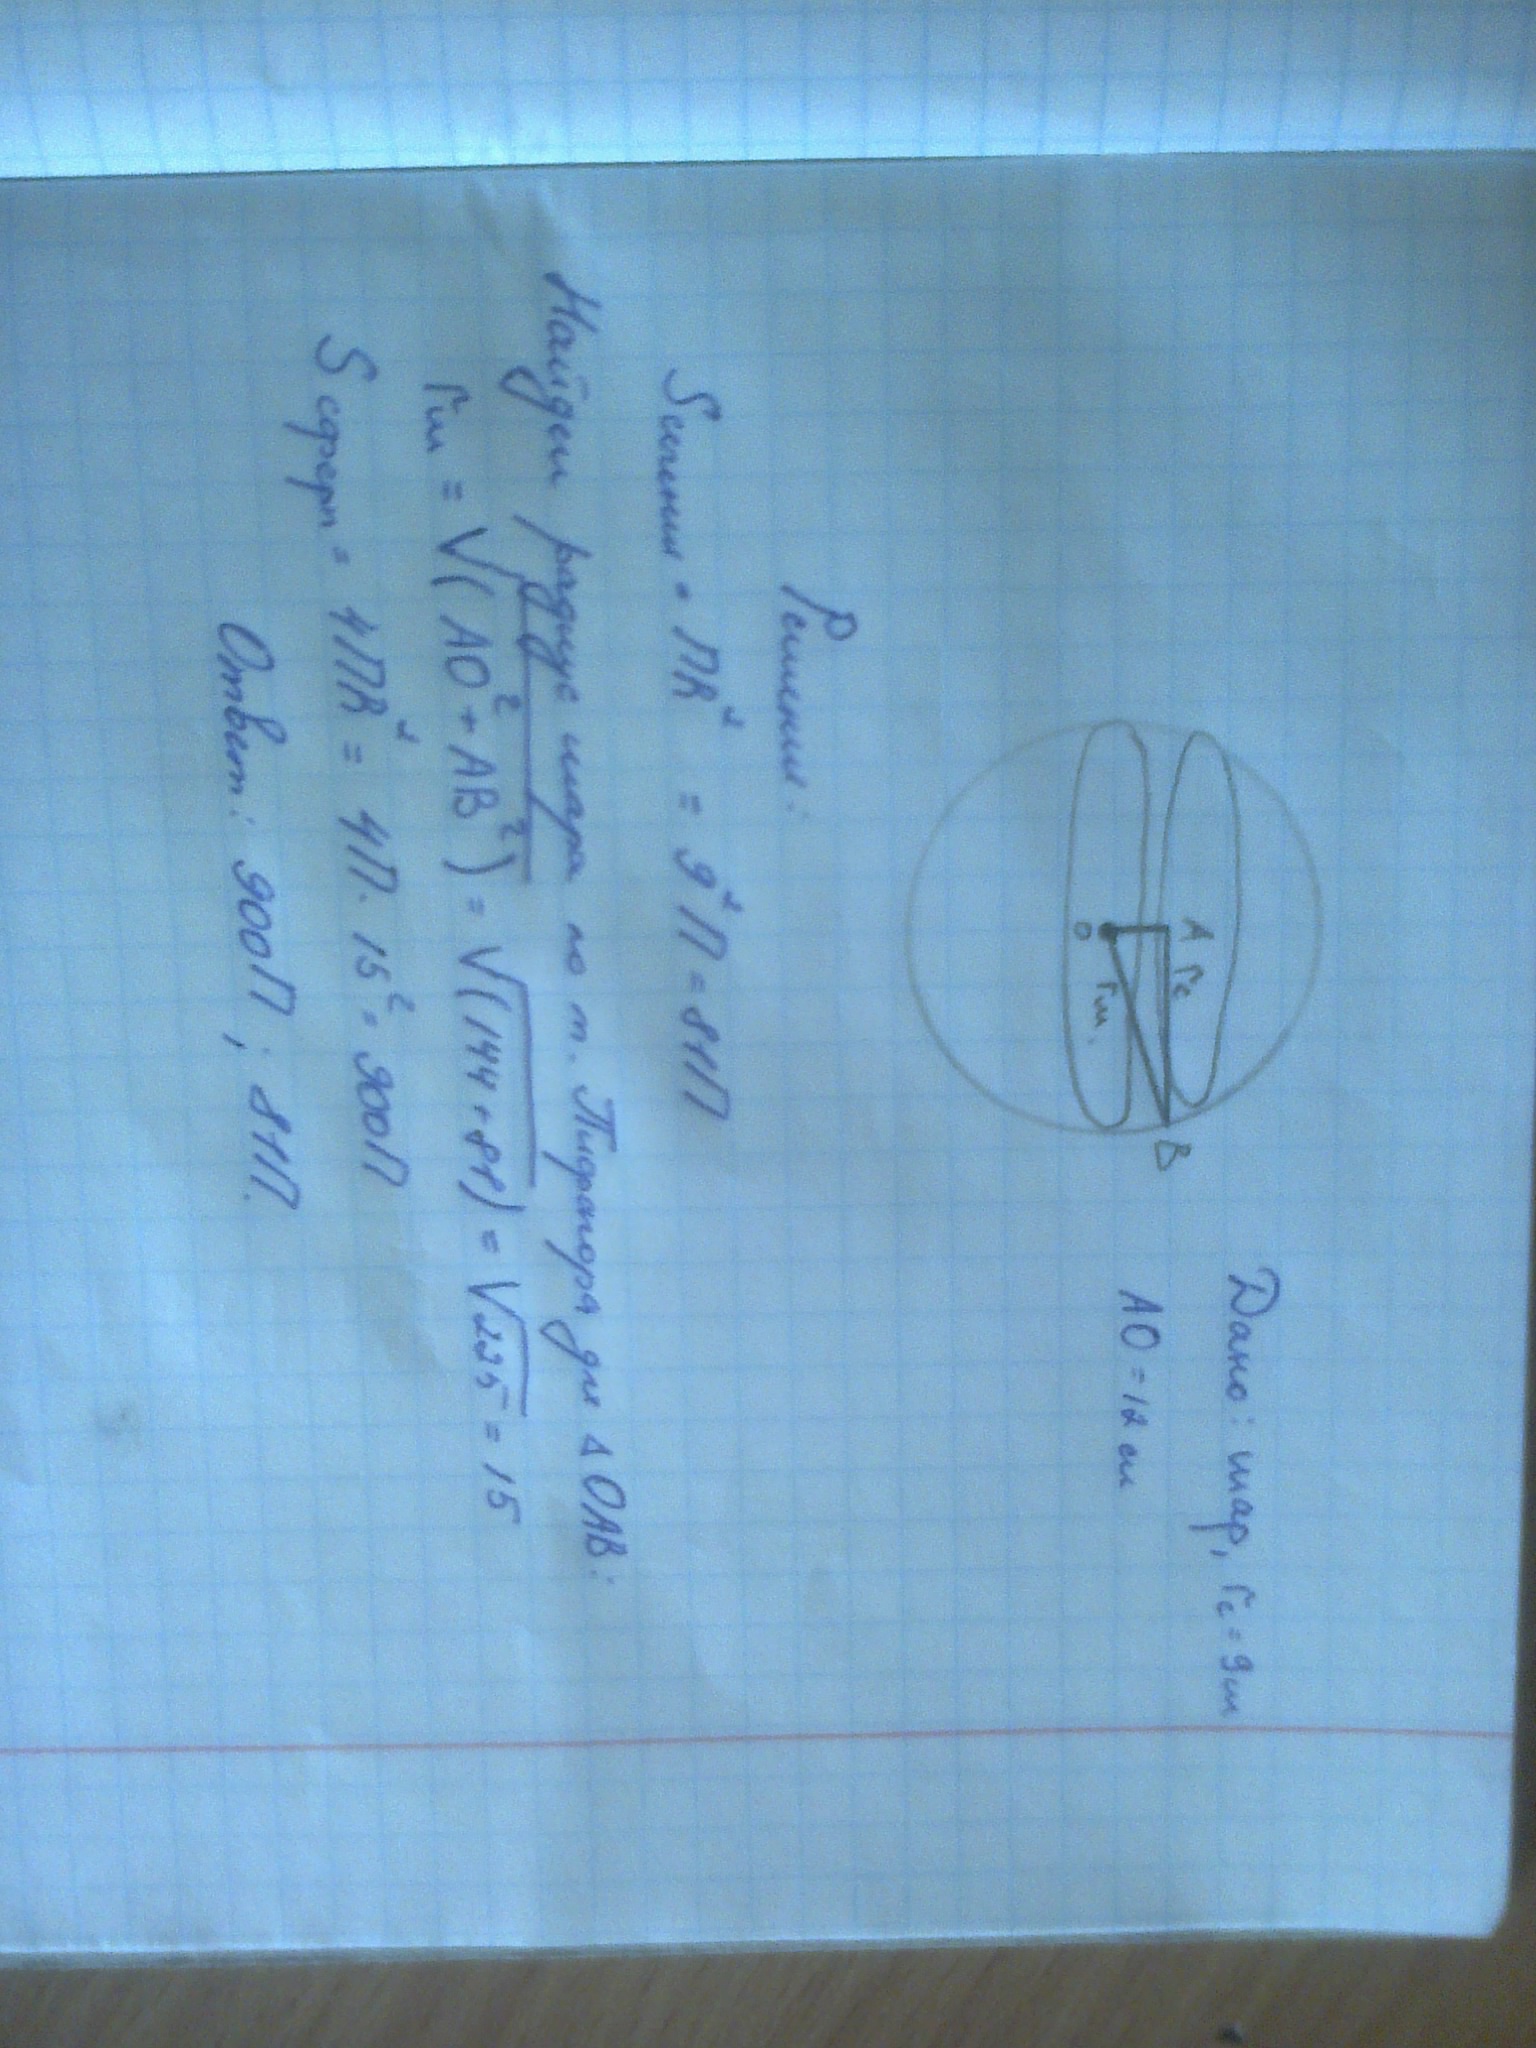 Дано: шар, rс = 9см
АО = 12 см
А
rс
В
О
rш.
Решение:
Sсечения = ПR² = 9²П = 81П
Найдем радиус шара по т. Пифагора для △ОАВ:
rш = √(АО² + АВ²) = √(144 + 81) = √225 = 15
Sсферы = 4ПR² = 4П · 15² = 900П
Ответ: 900П ; 81П.